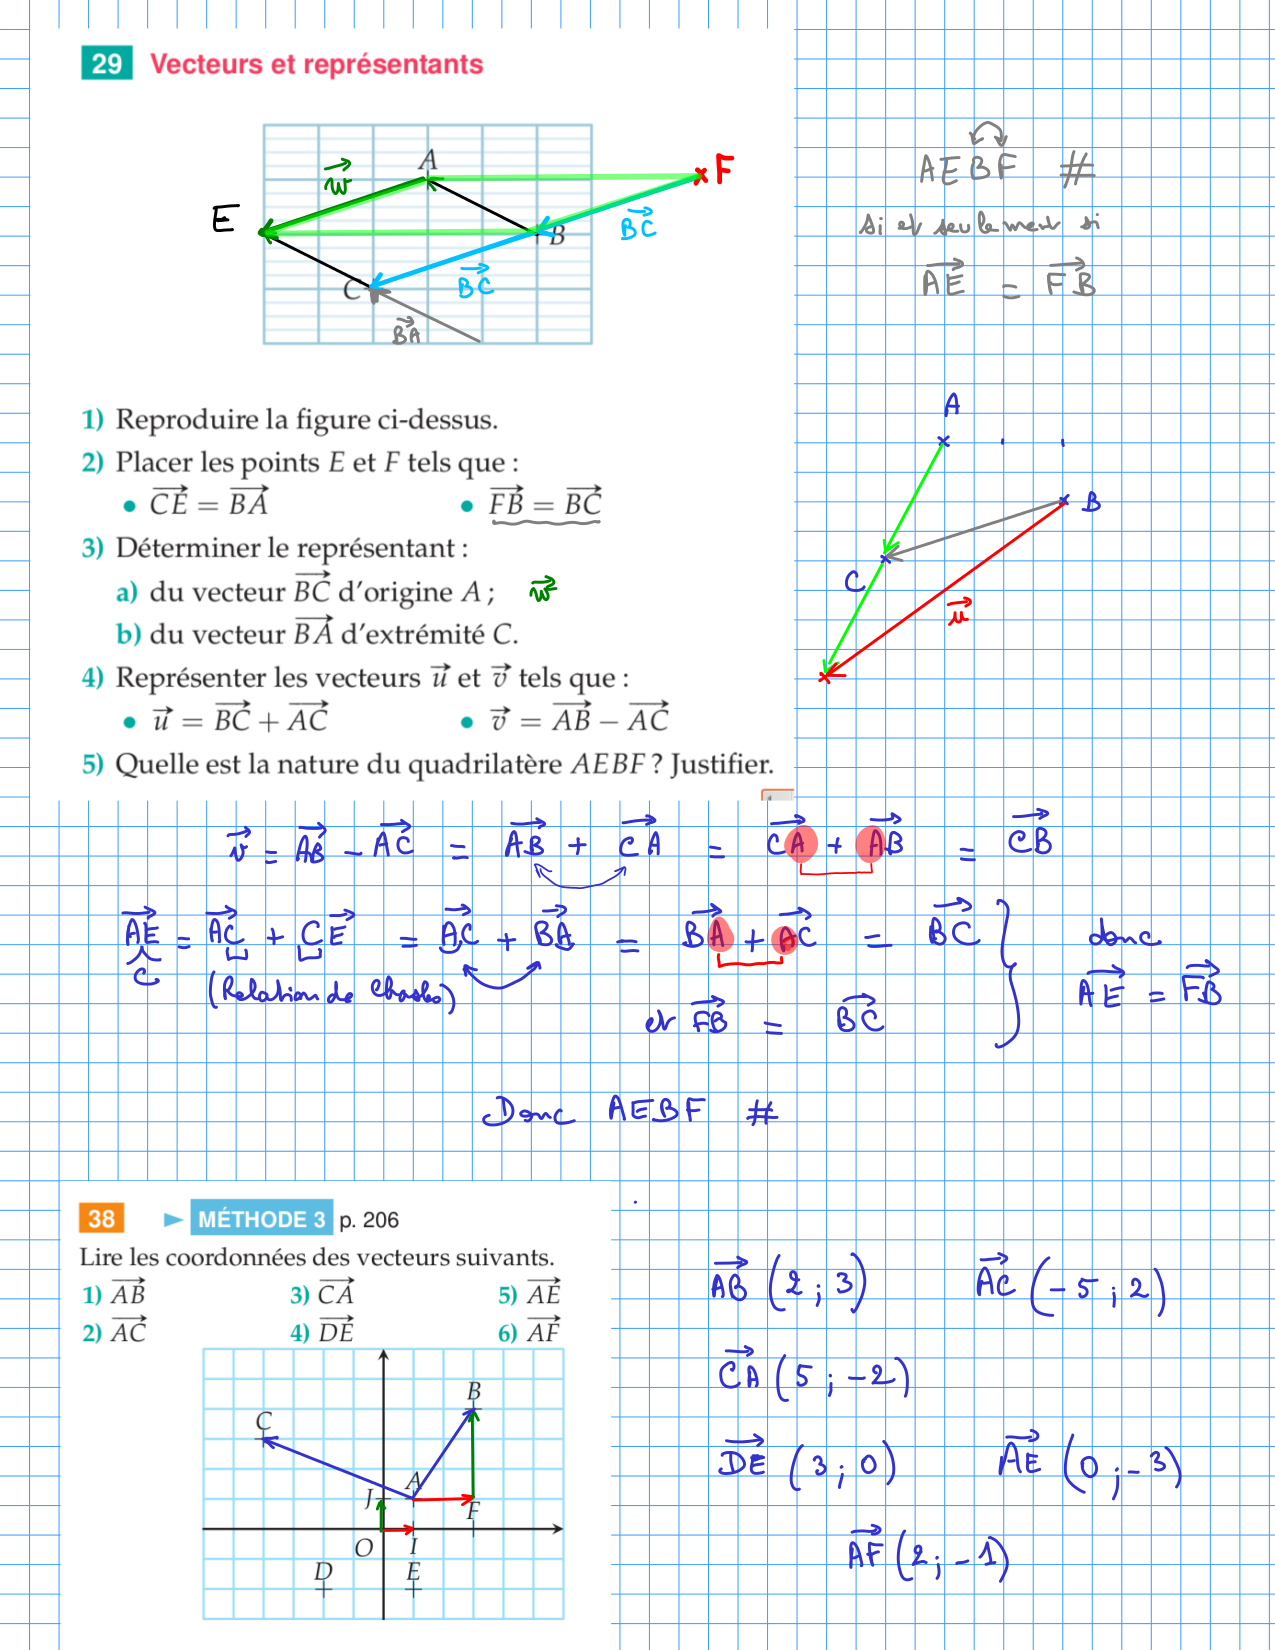 29 Vecteurs et représentants
A
B
C
E
F
$\vec{w}$
$\overrightarrow{BC}$
$\overrightarrow{BC}$
$\overrightarrow{BA}$
AEBF #
si et seulement si
$\overrightarrow{AE} = \overrightarrow{FB}$
1) Reproduire la figure ci-dessus.
2) Placer les points E et F tels que :
• $\overrightarrow{CE} = \overrightarrow{BA}$ • $\overrightarrow{FB} = \overrightarrow{BC}$
3) Déterminer le représentant :
a) du vecteur $\overrightarrow{BC}$ d'origine A ; $\vec{w}$
b) du vecteur $\overrightarrow{BA}$ d'extrémité C.
4) Représenter les vecteurs $\vec{u}$ et $\vec{v}$ tels que :
• $\vec{u} = \overrightarrow{BC} + \overrightarrow{AC}$ • $\vec{v} = \overrightarrow{AB} - \overrightarrow{AC}$
5) Quelle est la nature du quadrilatère AEBF ? Justifier.
A
B
C
$\vec{u}$
$\vec{v} = \overrightarrow{AB} - \overrightarrow{AC} = \overrightarrow{AB} + \overrightarrow{CA} = \overrightarrow{CA} + \overrightarrow{AB} = \overrightarrow{CB}$
$\overrightarrow{AE} = \overrightarrow{AC} + \overrightarrow{CE} = \overrightarrow{AC} + \overrightarrow{BA} = \overrightarrow{BA} + \overrightarrow{AC} = \overrightarrow{BC}$ donc
C (Relation de Chasles) $\overrightarrow{AE} = \overrightarrow{FB}$
et $\overrightarrow{FB} = \overrightarrow{BC}$
Donc AEBF #
38 ► MÉTHODE 3 p. 206
Lire les coordonnées des vecteurs suivants.
1) $\overrightarrow{AB}$ 3) $\overrightarrow{CA}$ 5) $\overrightarrow{AE}$
2) $\overrightarrow{AC}$ 4) $\overrightarrow{DE}$ 6) $\overrightarrow{AF}$
B
C
A
J
F
O I
D E
$\overrightarrow{AB}$ (2 ; 3) $\overrightarrow{AC}$ (-5 ; 2)
$\overrightarrow{CA}$ (5 ; -2)
$\overrightarrow{DE}$ (3 ; 0) $\overrightarrow{AE}$ (0 ; -3)
$\overrightarrow{AF}$ (2 ; -1)